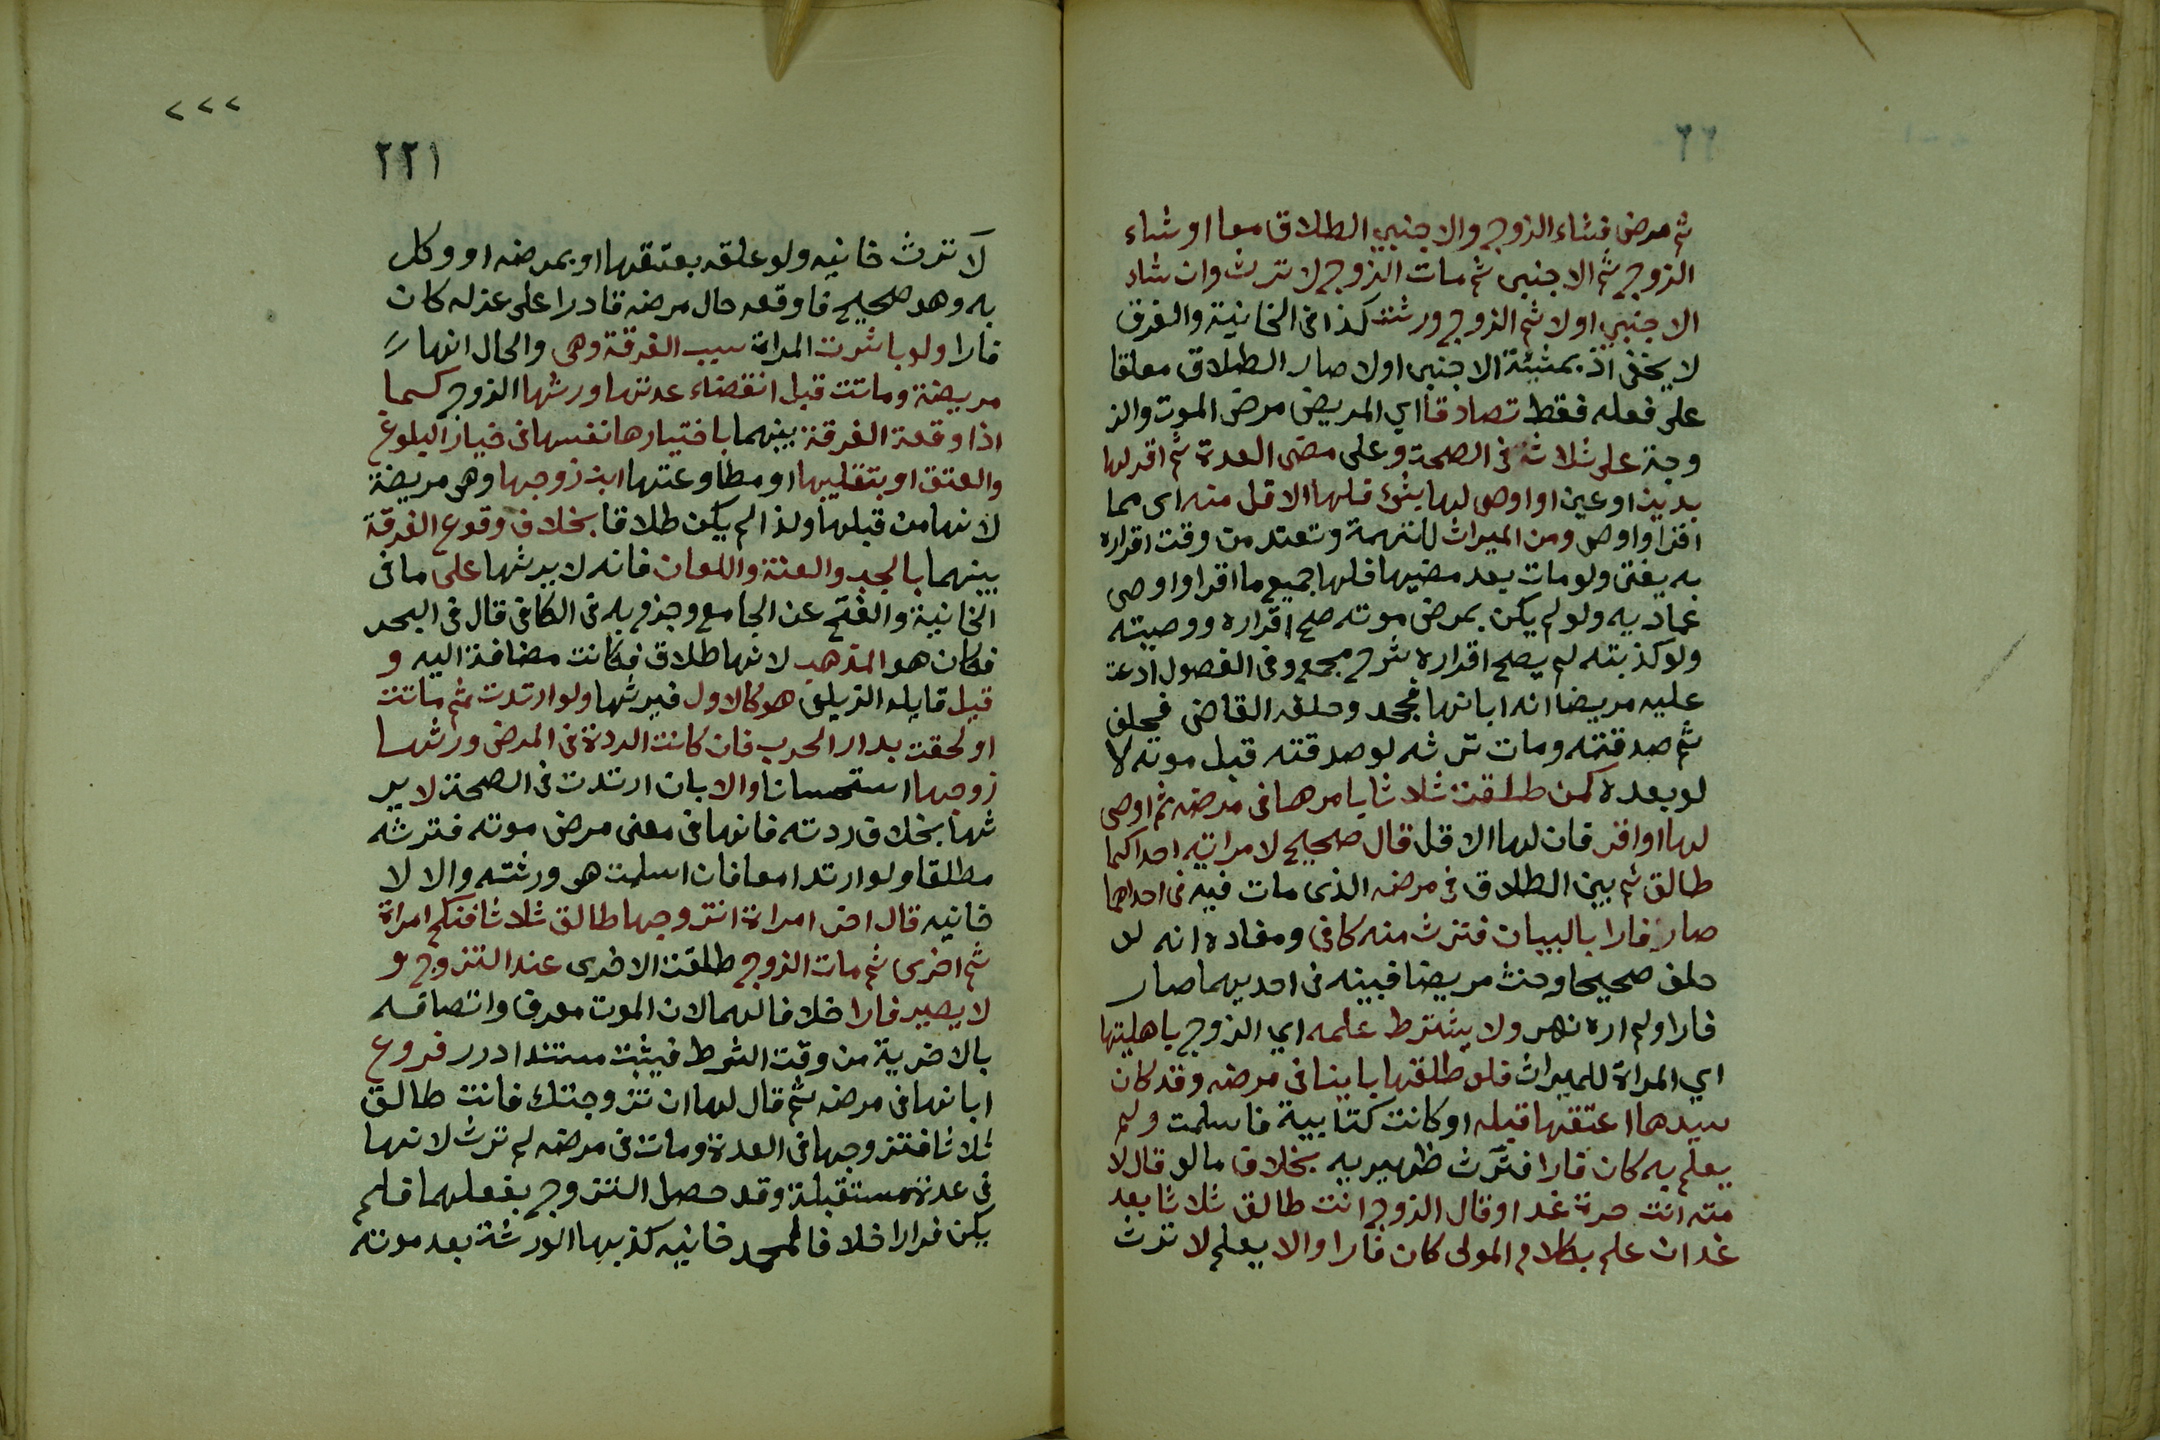 ثم مرض فشاء الزوج والاجنبي الطلاق معا او شاء
الزوج ثم الاجنبى ثم مات الزوج لا ترث وان شاء
الاجنبي اولا ثم الزوج ورثت كذا فى الخانية والفرق
لا يخفى اذ بمشيئة الاجنبى اولا صار الطلاق معلقا
على فعله فقط تصادقا اي المريض مرض الموت والز
وجة على ثلاثة فى الصحة وعلى مضى العدة ثم اقر لها
بدين او عين او اوصى لها بشئ فلها الاقل منه اى مما
اقر او اوصى ومن الميراث للتهمة وتعتد من وقت اقراره
به يفتى ولو مات بعد مضيها فلها جميع ما اقر او اوصى
عماديه ولو لم يكن بمرض موته صح اقراره ووصيته
ولو كذبته لم يصح اقراره شرح مجمع وفى الفصول ادعت
عليه مريضا انه ابانها فجحد وحلفه القاضى فحلف
ثم صدقته ومات ترثه لو صدقته قبل موته لا
لو بعده كمن طلقت ثلاثا بامرها فى مرضه ثم اوصى
لها او اقر فان لها الاقل قال صحيح لامراتيه احداكما
طالق ثم بين الطلاق فى مرضه الذى مات فيه فى احداهما
صار فارا بالبيان فترث منه كافى ومفاده انه لو
حلف صحيحا وحنث مريضا فبينه فى احديهما صار
فارا ولم اره نهر ولا يشترط علمه اي الزوج باهليتها
اي المراة للميراث فلو طلقها باينا فى مرضه وقد كان
سيدها اعتقها قبله او كانت كتابية فاسلمت ولم
يعلم به كان فارا فترث ظهيريه بخلاف ما لو قال لا
مته انت حرة غدا وقال الزوج انت طالق ثلاثا بعد
غد ان علم بكلام المولى كان فارا والا يعلم لا ترث
٢٢١
لا ترث خانيه ولو علقه بعتقها او بمرضه او وكل
به وهو صحيح فاوقعه حال مرضه قادرا على عزله كان
فارا ولو باشرت المراة سبب الفرقة وهى والحال انها
مريضة وماتت قبل انقضاء عدتها ورثها الزوج كما
اذا وقعة الفرقة بينهما باختيارها نفسها فى خيار البلوغ
والعتق او بتقليبها او مطاوعتها ابن زوجها وهى مريضة
لانها من قبلها ولذا لم يكن طلاقا بخلاف وقوع الفرقة
بينهما بالجب والعنة واللعان فانه لا يرثها على ما فى
الخانية والفتح عن الجامع وجزم به فى الكافى قال فى البحر
فكان هو المذهب لانها طلاق فكانت مضافة اليه و
قيل قايله الزيلعى هو كالاول فيرثها ولو ارتدت ثم ماتت
او لحقت بدار الحرب فان كانت الردة فى المرض ورثها
زوجها استحسانا والا بان ارتدت فى الصحة لا ير
ثها بخلاف ردته فانها فى معنى مرض موته فترثه
مطلقا ولو ارتدا معا فان اسلمت هى ورثته والا لا
خانيه قال اخر امراة اتزوجها طالق ثلاثا فنكح امراة
ثم اخرى ثم مات الزوج طلقت الاخرى عند التزوج و
لا يصير فارا خلافا لهما لان الموت معرف واتصافه
بالاخرية من وقت الشرط فيثبت مستندا درر فروع
ابانها فى مرضه ثم قال لها ان تزوجتك فانت طالق
ثلاثا فتزوجها فى العدة ومات فى مرضه لم ترث لانها
فى عدة مستقبلة وقد حصل التزوج بفعلها فلم
يكن فرارا خلافا لمحمد خانيه كذبها الورثة بعد موته